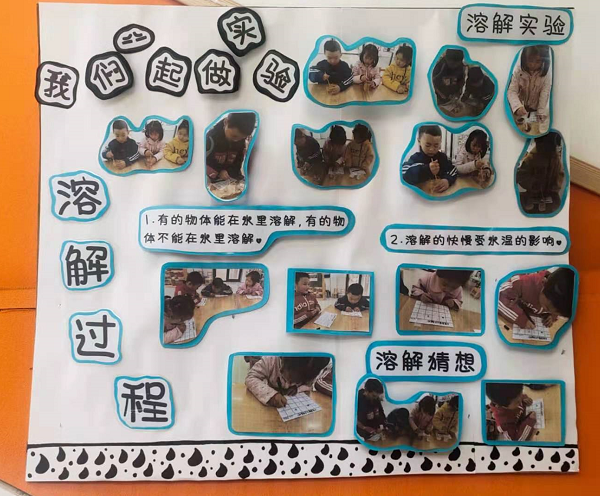 我们一起做实验
溶解实验
溶解过程
1.有的物体能在水里溶解,有的物
体不能在水里溶解。
2.溶解的快慢受水温的影响。
溶解猜想